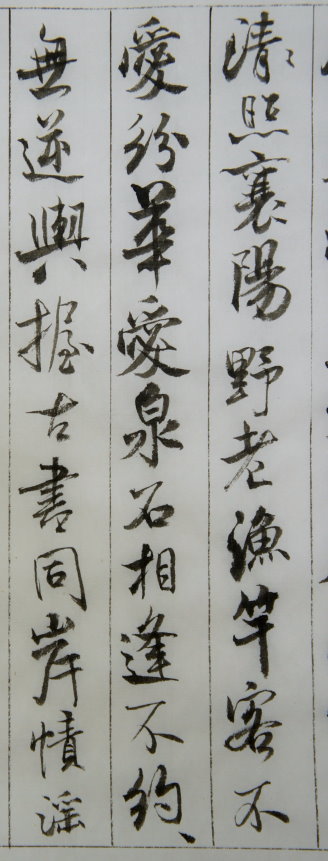 清照襄陽野老漁竿客不
愛紛華愛泉石相逢不約
無逆輿握古書同岸幘淫